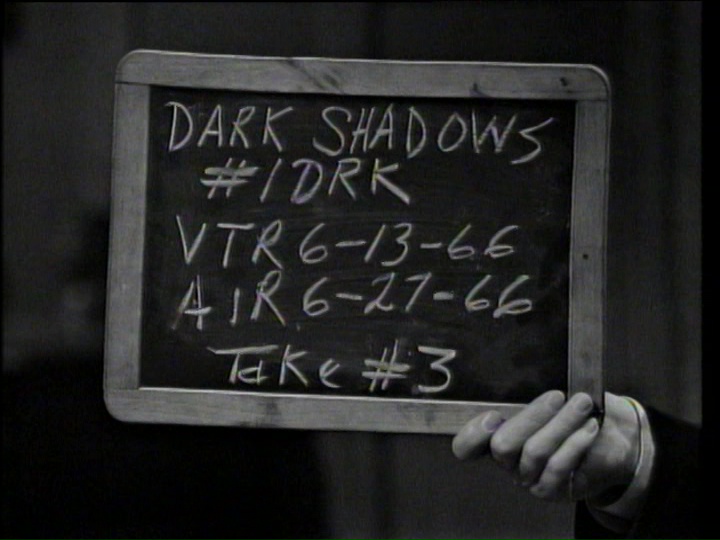 DARK SHADOWS
#1 DRK
VTR 6-13-66
AIR 6-27-66
Take #3